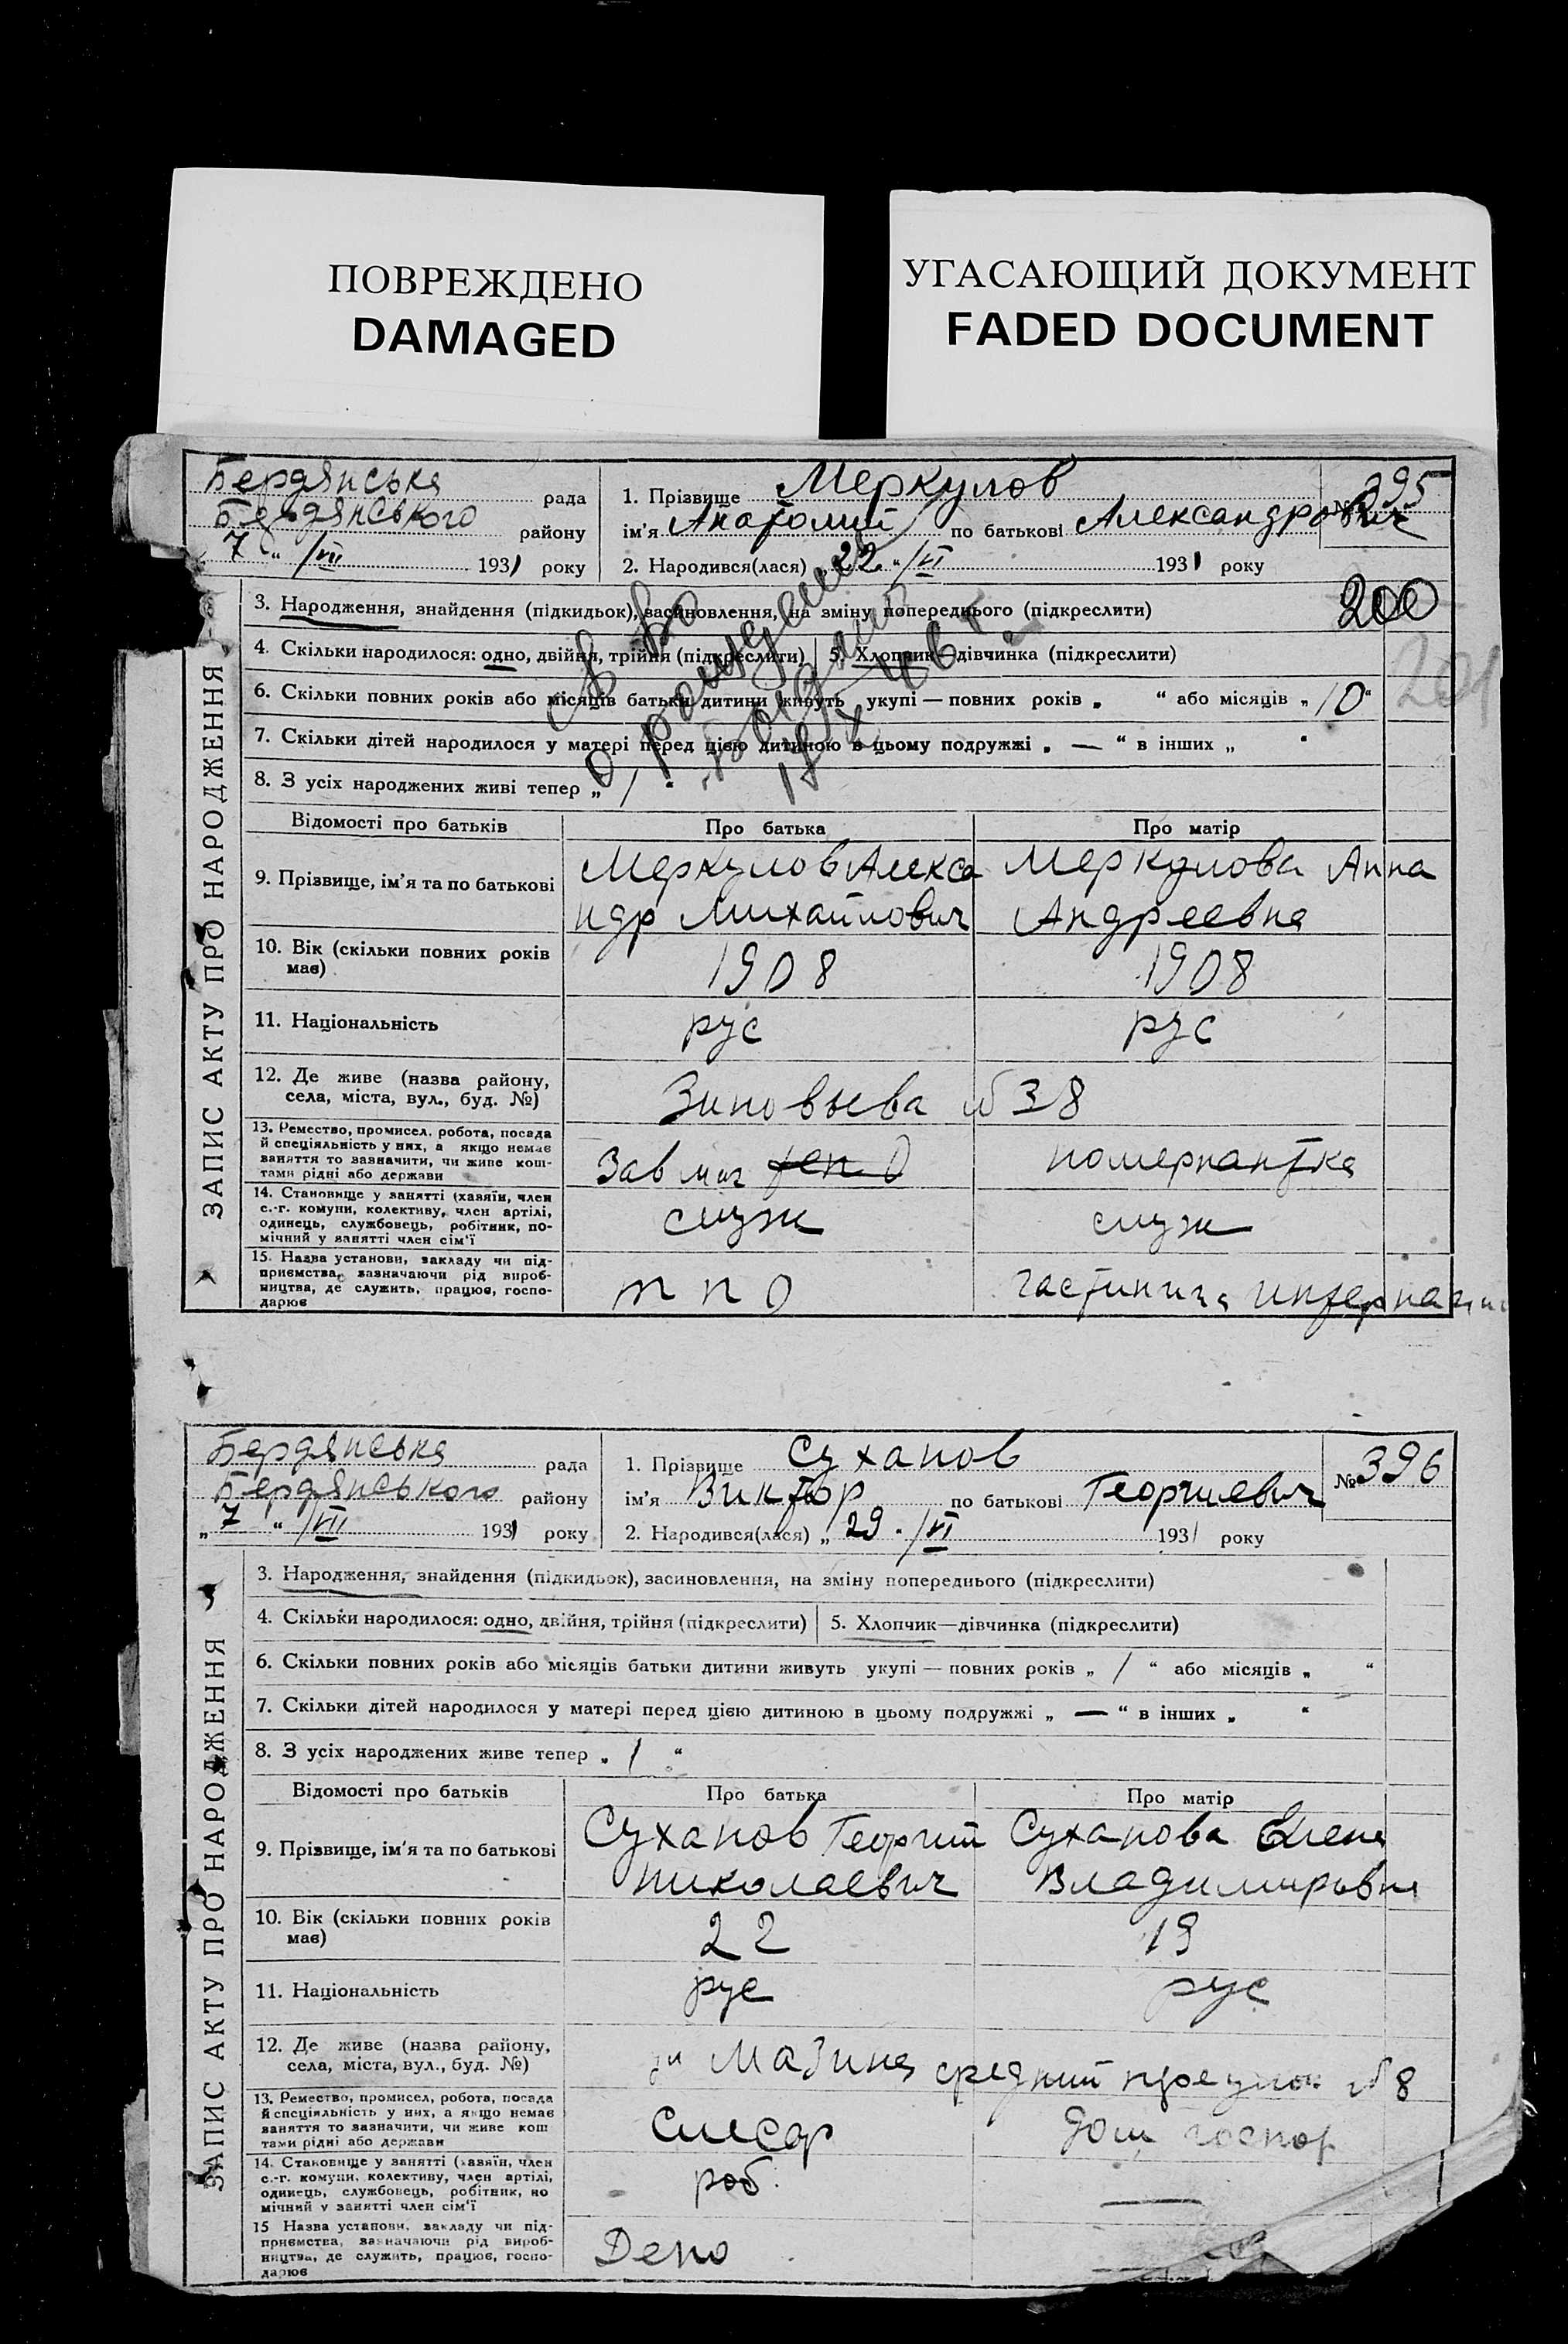 ПОВРЕЖДЕНО
DAMAGED
УГАСАЮЩИЙ ДОКУМЕНТ
FADED DOCUMENT
Бердянська рада
Бердянського району
„ 7 “ /VII 1931 року
1. Прізвище Меркулов
№ 395
ім’я Анатолий по батькові Александрович
2. Народився(лася) „ 22. “ /VI 1931 року
ЗАПИС АКТУ ПРО НАРОДЖЕННЯ
3. Народження, знайдення (підкидьок), засиновлення, на зміну попереднього (підкреслити)
200
201
4. Скільки народилося: одно, двійня, трійня (підкреслити)
5. Хлопчик—дівчинка (підкреслити)
6. Скільки повних років або місяців батьки дитини живуть укупі — повних років „ “ або місяців „ 10 “
7. Скільки дітей народилося у матері перед цією дитиною в цьому подружжі „ — “ в інших „ “
8. З усіх народжених живі тепер „ 1 “
Відомості про батьків
Про батька
Про матір
9. Прізвище, ім’я та по батькові
Меркулов Алекса
ндр Михайлович
Меркулова Анна
Андреевна
10. Вік (скільки повних років
має)
1908
1908
11. Національність
рус
рус
12. Де живе (назва району,
села, міста, вул., буд. №)
Зиновьева № 38
13. Ремество, промисел, робота, посада
й спеціяльність у них, а якщо немає
заняття то зазначити, чи живе кош-
тами рідні або держави
Зав маг
номернантка
14. Становище у занятті (хазяїн, член
с.-г. комуни, колективу, член артілі,
одинець, службовець, робітник, по-
мічний у занятті член сім’ї
служ
служ
15. Назва установи, закладу чи під-
приємства, зазначаючи рід вироб-
ництва, де служить, працює, госпо-
дарює
т п о
гастиница
Бердянська рада
Бердянського району
„ 7 “ /VII 1931 року
1. Прізвище Суханов
№ 396
ім’я Виктор по батькові Георгиевич
2. Народився(лася) „ 29. /VI 1931 року
ЗАПИС АКТУ ПРО НАРОДЖЕННЯ
3. Народження, знайдення (підкидьок), засиновлення, на зміну попереднього (підкреслити)
4. Скільки народилося: одно, двійня, трійня (підкреслити)
5. Хлопчик—дівчинка (підкреслити)
6. Скільки повних років або місяців батьки дитини живуть укупі — повних років „ 1 “ або місяців „ “
7. Скільки дітей народилося у матері перед цією дитиною в цьому подружжі „ — “ в інших „ “
8. З усіх народжених живе тепер „ 1 “
Відомості про батьків
Про батька
Про матір
9. Прізвище, ім’я та по батькові
Суханов Георгий
Николаевич
Суханова Елена
Владимировна
10. Вік (скільки повних років
має)
22
19
11. Національність
рус
рус
12. Де живе (назва району,
села, міста, вул., буд. №)
Мазина средний № 8
13. Ремество, промисел, робота, посада
й спеціяльність у них, а якщо немає
заняття то зазначити, чи живе кош
тами рідні або держави
Слесар
дом госпор
14. Становище у занятті (хазяїн, член
с.-г. комуни, колективу, член артілі,
одинець, службовець, робітник, по
мічний у занятті член сім’ї
роб.
—
15 Назва установи, закладу чи під-
приємства, зазначаючи рід вироб-
ництва, де служить, працює, госпо-
дарює
Депо